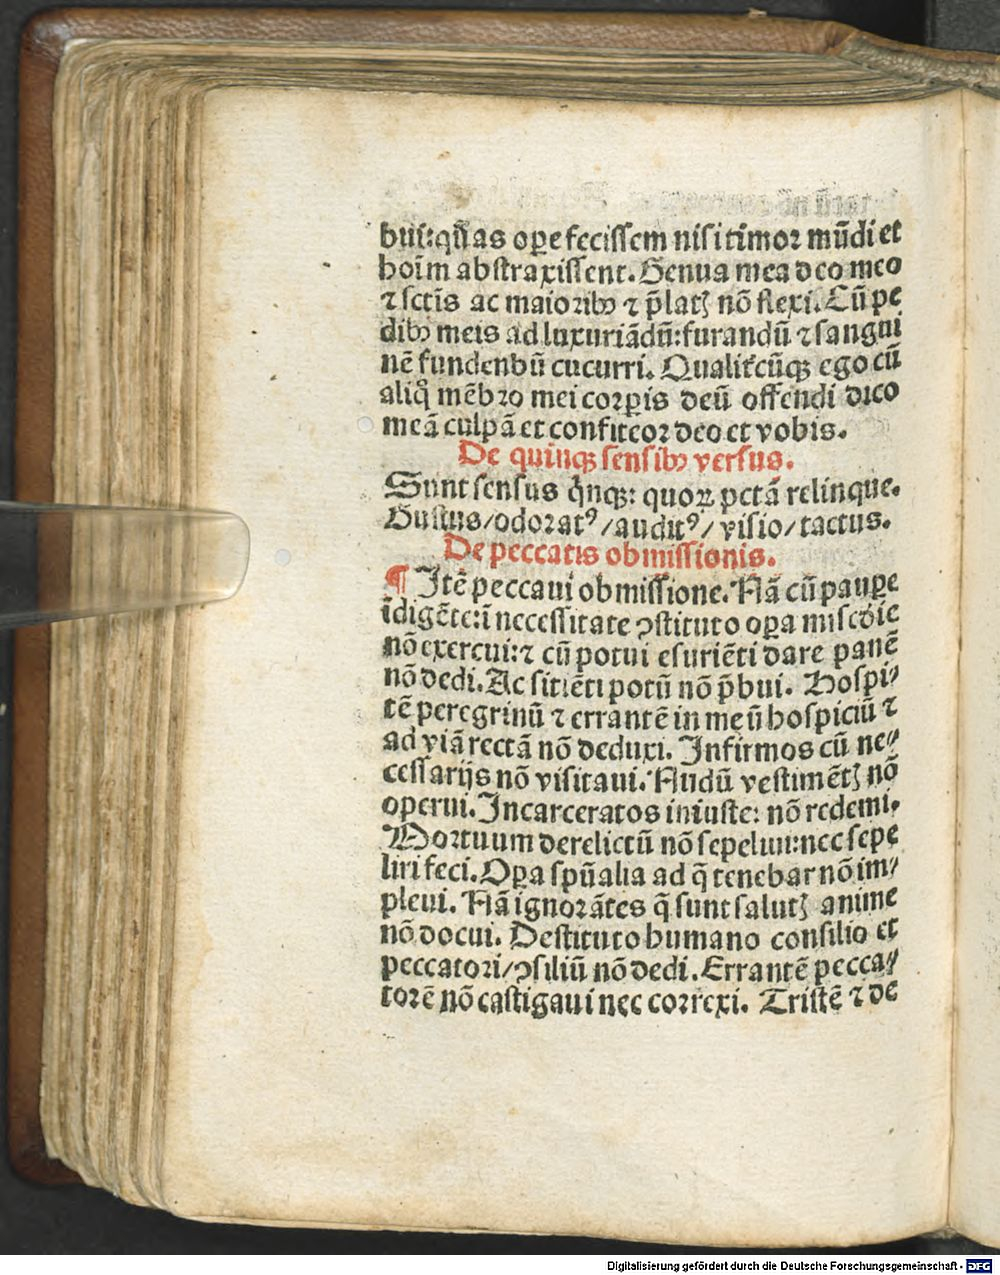 bui:q̃ si as oꝑe fecissem nisi timor mũdi et
hoim̃ abstraxissent. Genua mea deo meo
⁊ sctĩs ac maiorib⁹ ⁊ p̃latꝭ nõ flexi. Cũ pe
dib⁹ meis ad luxuriãdũ: furandũ ⁊ sangui
nẽ fundendũ cucurri. Qualit̃cũqꝫ ego cũ
aliq̊ mẽbro mei corꝑis deũ offendi dico
meã culpã et confiteor deo et vobis.
De quinqꝫ sensib⁹ versus.
Sunt sensus q̃nqꝫ: quoꝝ pctã relinque.
Gustus/odorat⁹/audit⁹/visio/tactus.
De peccatis obmissionis.
¶ Itẽ peccaui obmissione. Nã cũ pauꝑe
ĩdigẽte: ĩ necessitate ꝯstituto oꝑa mis̃cdie
nõ exercui: ⁊ cũ potui esuriẽti dare panẽ
nõ dedi. Ac sitiẽti potũ nõ p̃bui. Hospi⸗
tẽ peregrinũ ⁊ errantẽ in meũ hospiciũ ⁊
ad viã rectã nõ deduxi. Infirmos cũ ne⸗
cessarijs nõ visitaui. Nudũ vestimẽtꝭ nõ
operui. Incarceratos iniuste: nõ redemi.
Mortuum derelictũ nõ sepeliui: nec sepe
liri feci. Oꝑa spũalia ad q̃ tenebar nõ im⸗
pleui. Nã ignorãtes q̃ sunt salutꝭ anime
nõ docui. Destituto humano consilio et
peccatori/ꝯsiliũ nõ dedi. Errantẽ pecca⸗
torẽ nõ castigaui nec correxi. Tristẽ ⁊ de
Digitalisierung gefördert durch die Deutsche Forschungsgemeinschaft - DFG